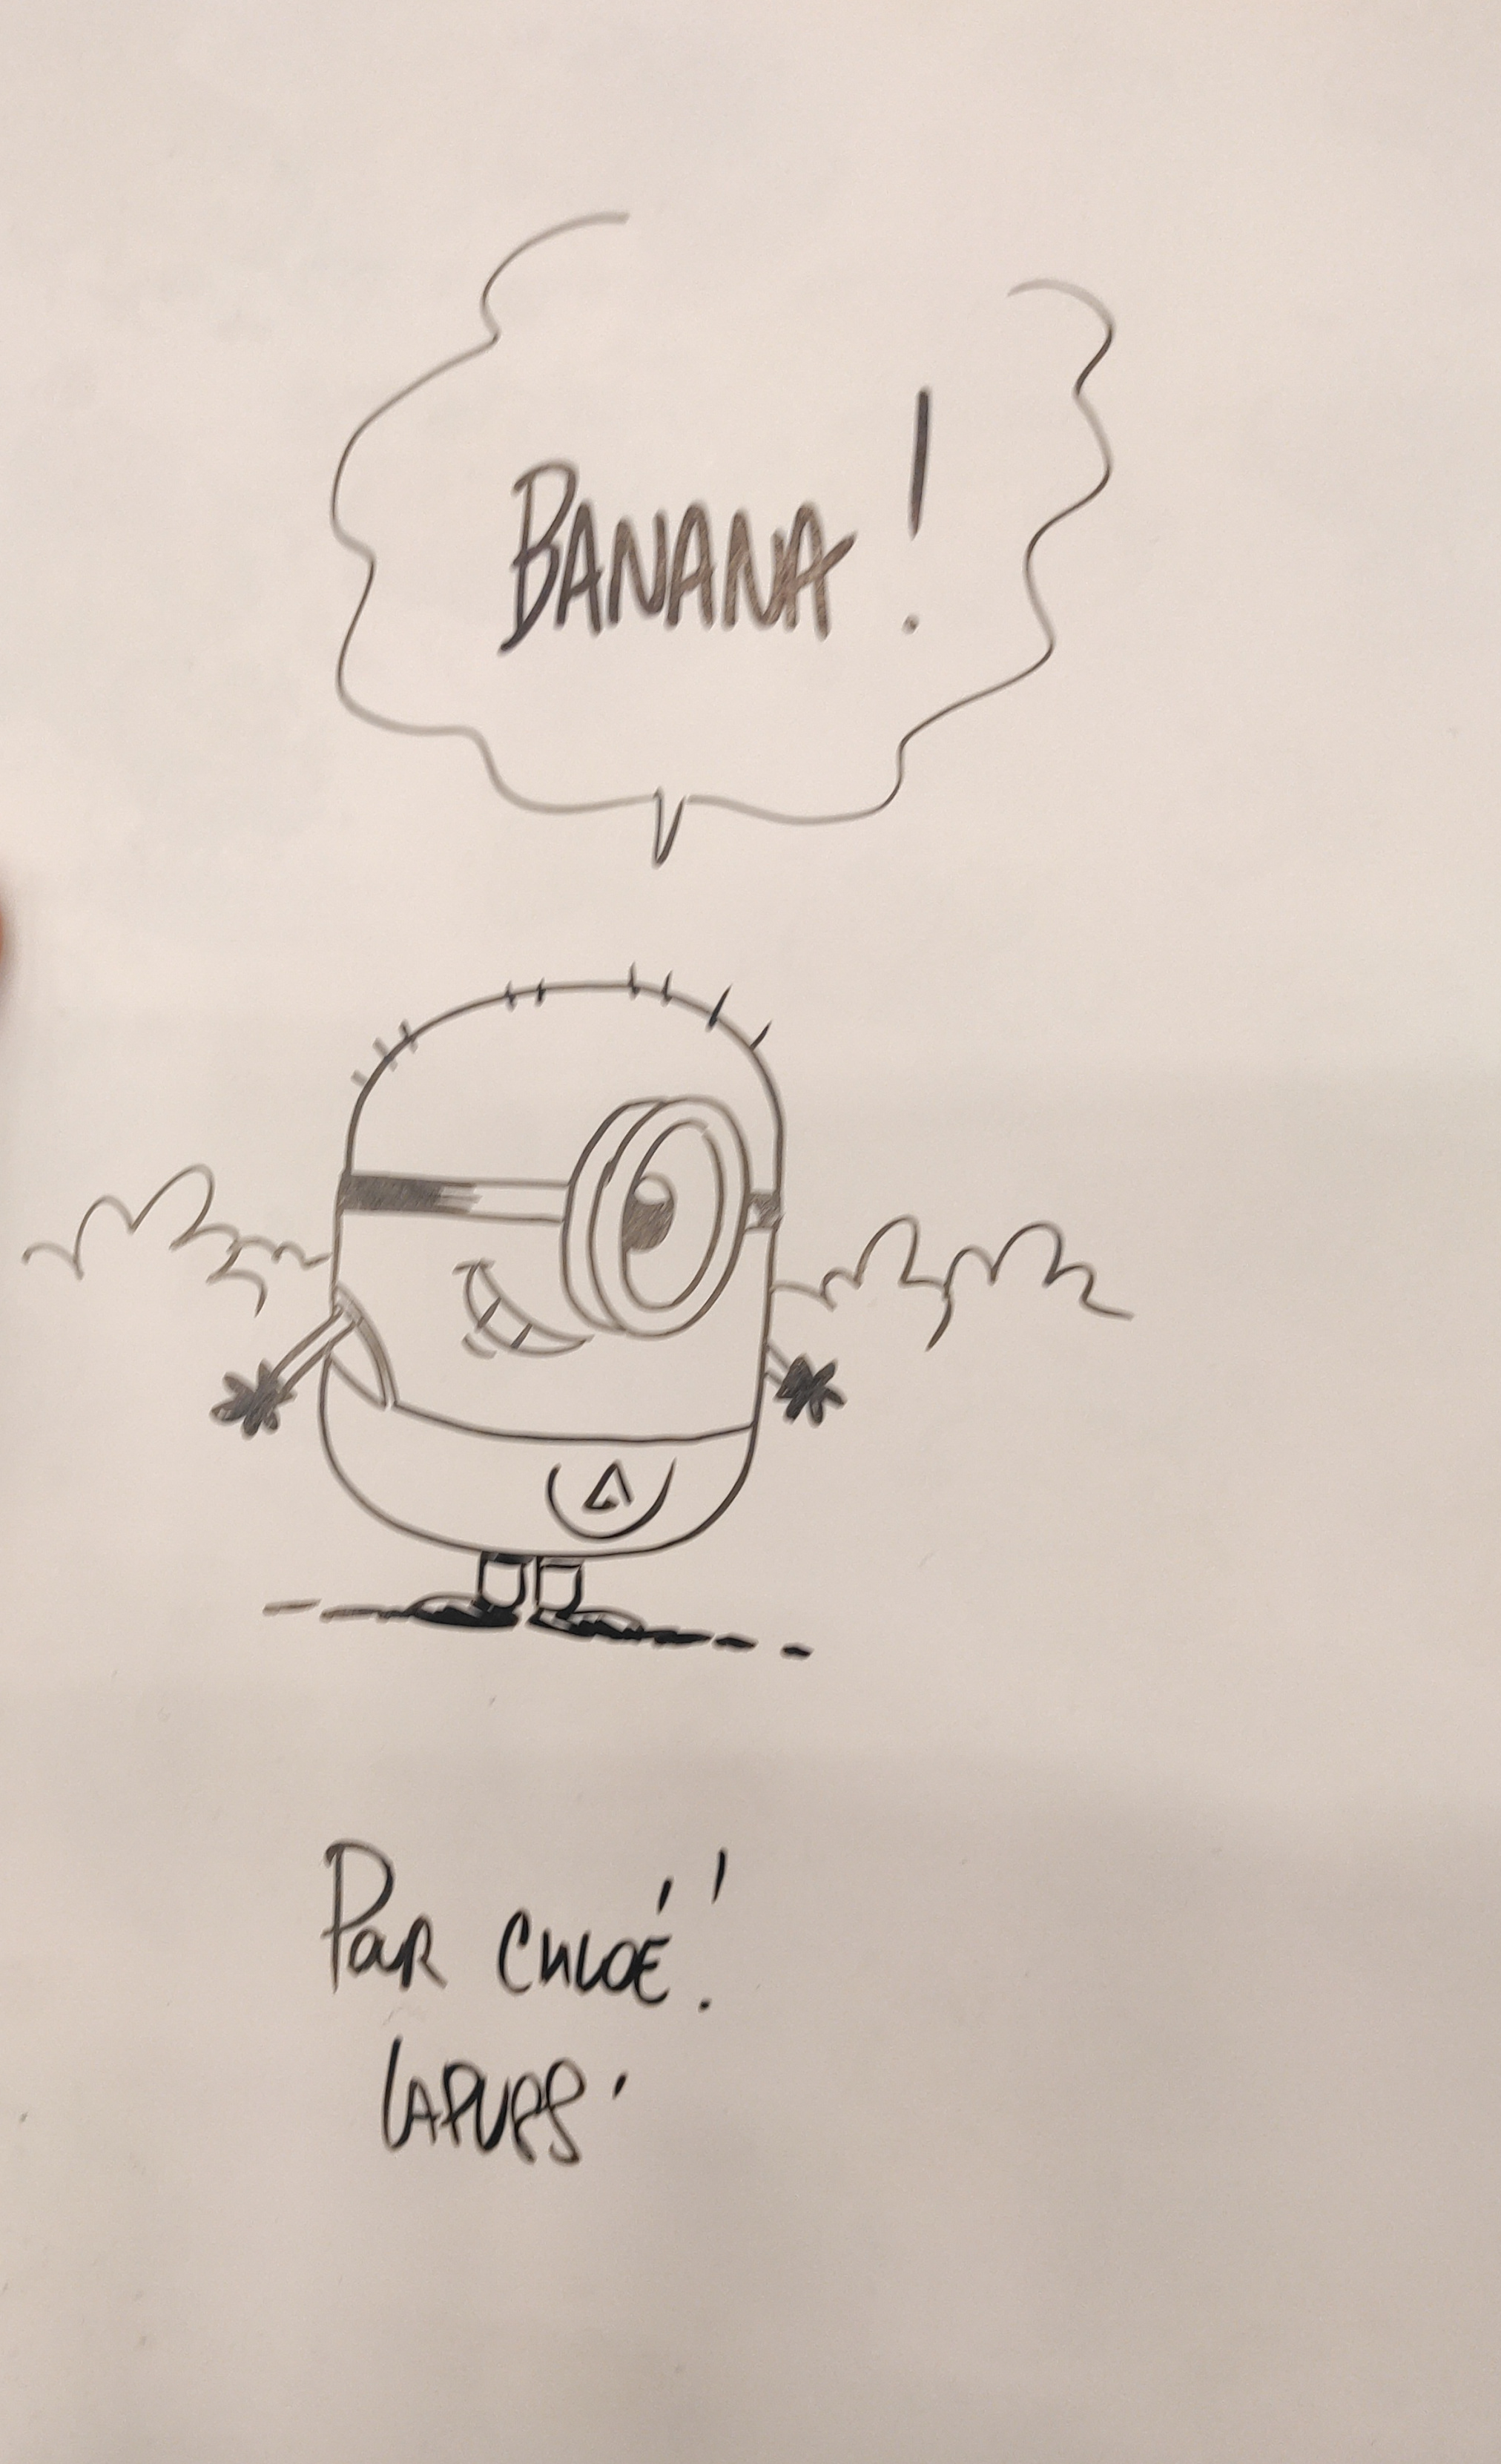 BANANA !
POUR CHLOÉ !
LAPUSS'